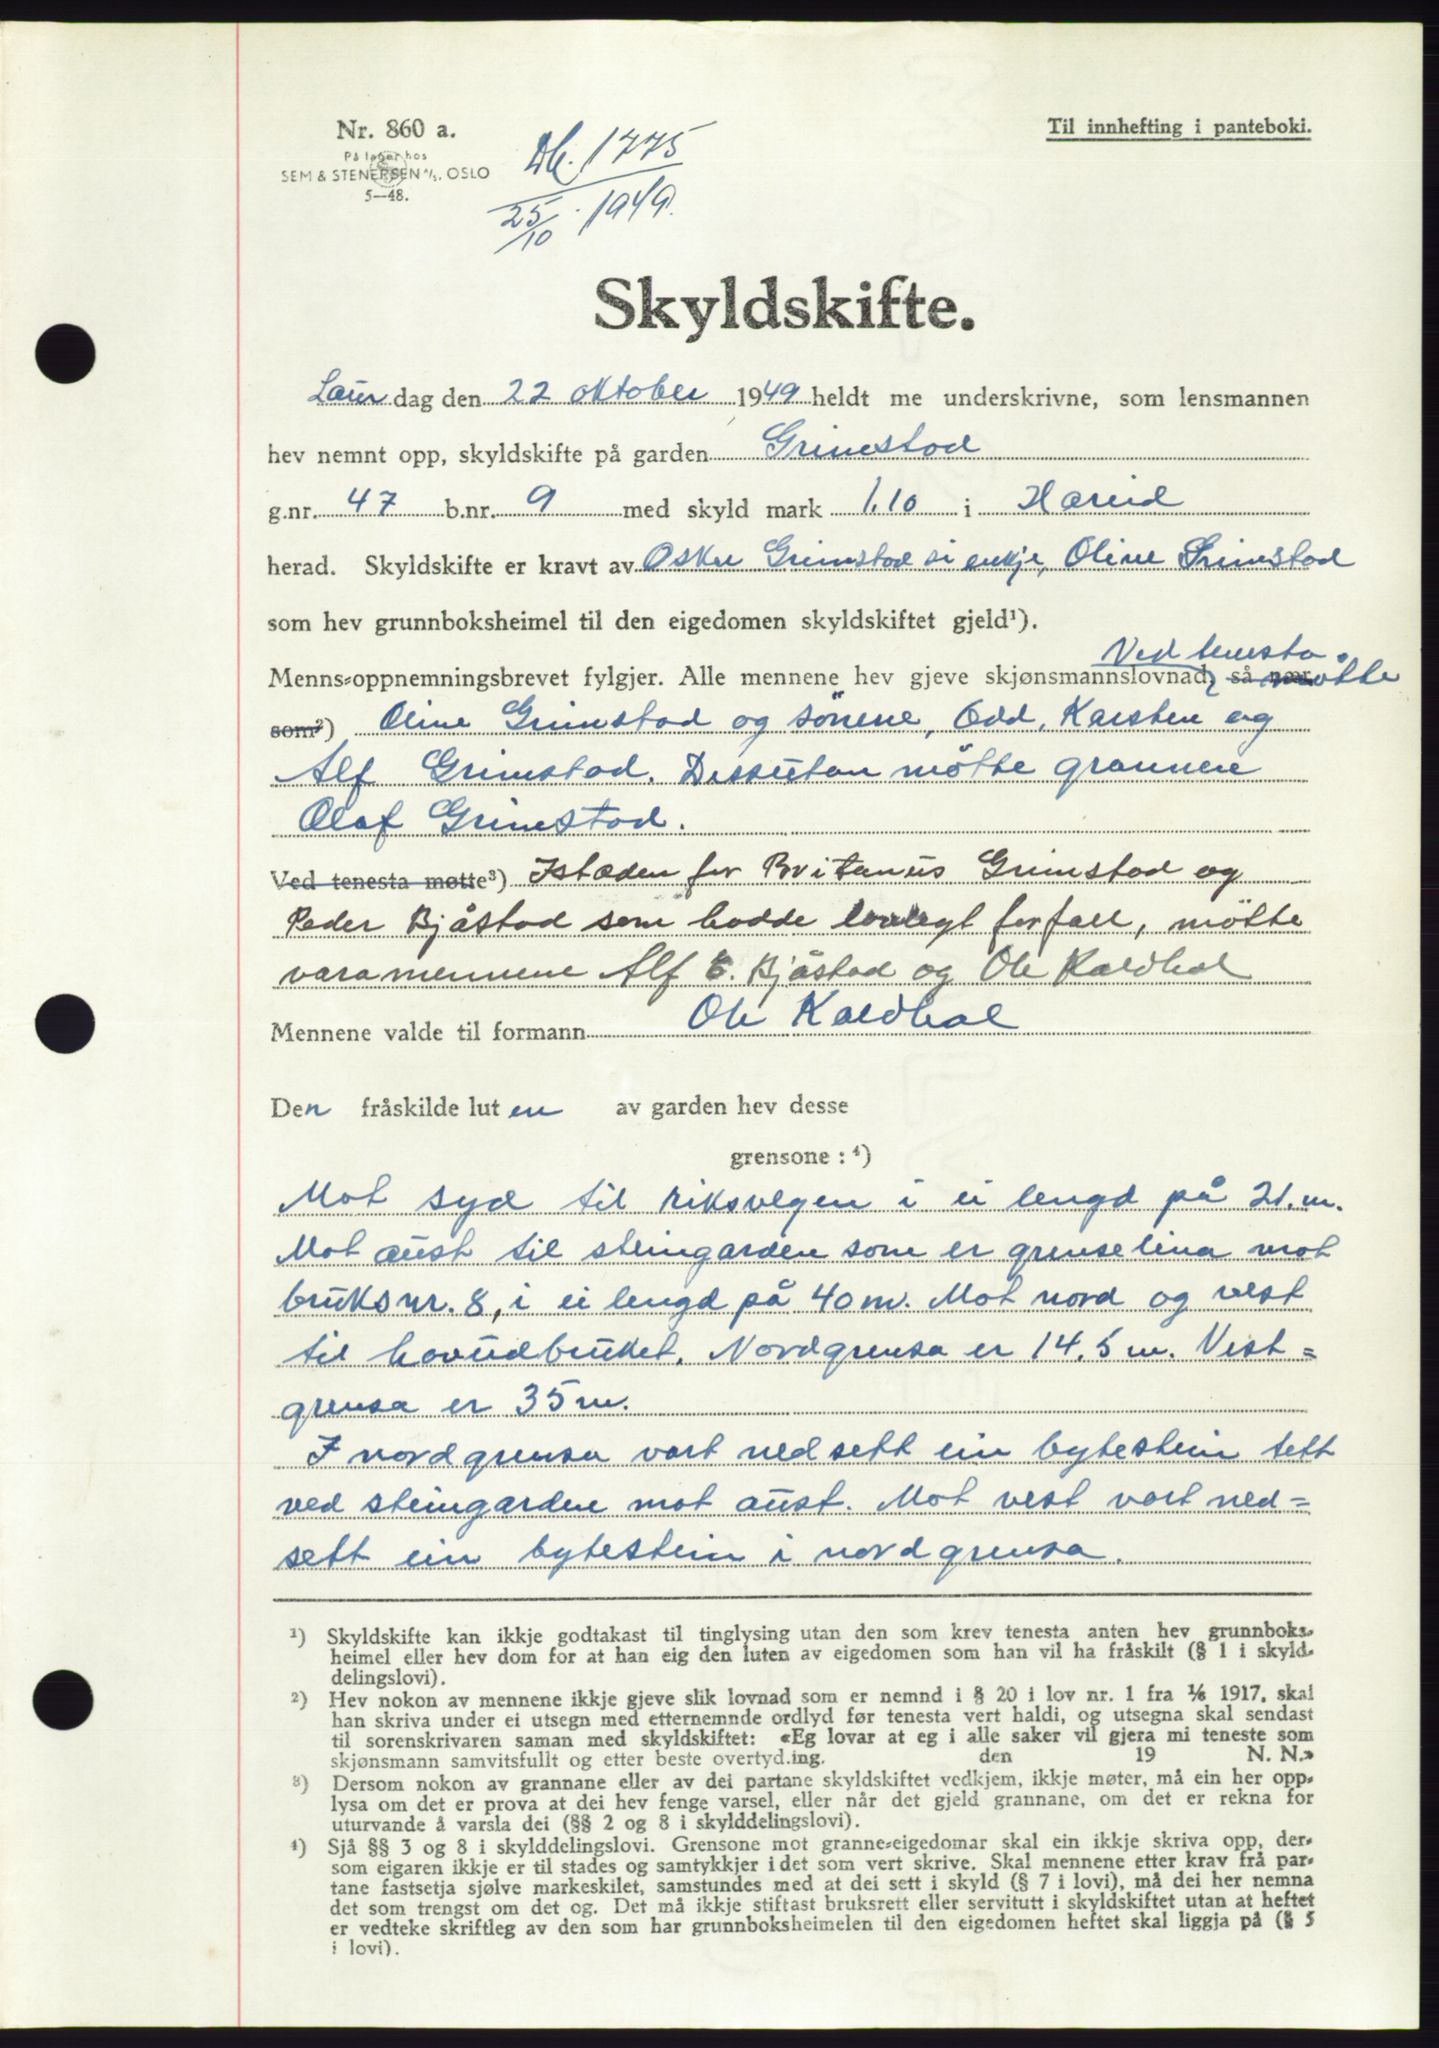 Nr. 860 a.
På lager hos
SEM & STENERSEN A/S, OSLO
5—48.
Db. 1775
25/10 1949.
Til innhefting i panteboki.
Skyldskifte.
Laur dag den 22 oktober 1949 heldt me underskrivne, som lensmannen
hev nemnt opp, skyldskifte på garden Grimstad
g.nr. 47 b.nr. 9 med skyld mark 1.10 i Hareid
herad. Skyldskifte er kravt av Oskar Grimstad si enkje, Oline Grimstad
som hev grunnboksheimel til den eigedomen skyldskiftet gjeld¹).
Ved tenesta
Menns-oppnemningsbrevet fylgjer. Alle mennene hev gjeve skjønsmannslovnad, så nær møtte
som²) Oline Grimstad og sönene, Odd, Karsten og
Alf Grimstad. Dessutan mötte grannen
Olaf Grimstad.
Ved tenesta møtte³) Istaden for Britanus Grimstad og
Peder Bjåstad som hadde lovlegt forfall, mötte
varamennene Alf E. Bjåstad og Ole Kaldhol
Mennene valde til formann Ole Kaldhol
Den fråskilde luten av garden hev desse
grensone : ⁴)
Mot syd til riksvegen i ei lengd på 21. m.
Mot aust til steingarden som er grenselina mot
bruksnr. 8, i ei lengd på 40 m. Mot nord og vest
til hovudbruket. Nordgrensa er 14.5 m. Vest=
grensa er 35 m.
I nordgrensa vart nedsett ein bytestein tett
ved steingarden mot aust. Mot vest vart ned=
sett ein bytestein i nordgrensa.
¹) Skyldskifte kan ikkje godtakast til tinglysing utan den som krev tenesta anten hev grunnboks-
heimel eller hev dom for at han eig den luten av eigedomen som han vil ha fråskilt (§ 1 i skyld-
delingslovi).
²) Hev nokon av mennene ikkje gjeve slik lovnad som er nemnd i § 20 i lov nr. 1 fra 1/6 1917, skal
han skriva under ei utsegn med etternemnde ordlyd før tenesta vert haldi, og utsegna skal sendast
til sorenskrivaren saman med skyldskiftet: «Eg lovar at eg i alle saker vil gjera mi teneste som
skjønsmann samvitsfullt og etter beste overtyding. den 19 N. N.»
³) Dersom nokon av grannane eller av dei partane skyldskiftet vedkjem, ikkje møter, må ein her opp-
lysa om det er prova at dei hev fenge varsel, eller når det gjeld grannane, om det er rekna for
uturvande å varsla dei (§§ 2 og 8 i skylddelingslovi).
⁴) Sjå §§ 3 og 8 i skylddelingslovi. Grensone mot granne-eigedomar skal ein ikkje skriva opp, der-
som eigaren ikkje er til stades og samtykkjer i det som vert skrive. Skal mennene etter krav frå par-
tane fastsetja sjølve markeskilet, samstundes med at dei sett i skyld (§ 7 i lovi), må dei her nemna
det som trengst om det og. Det må ikkje stiftast bruksrett eller servitutt i skyldskiftet utan at heftet
er vedteke skriftleg av den som har grunnboksheimelen til den eigedomen heftet skal liggja på (§ 5
i lovi).